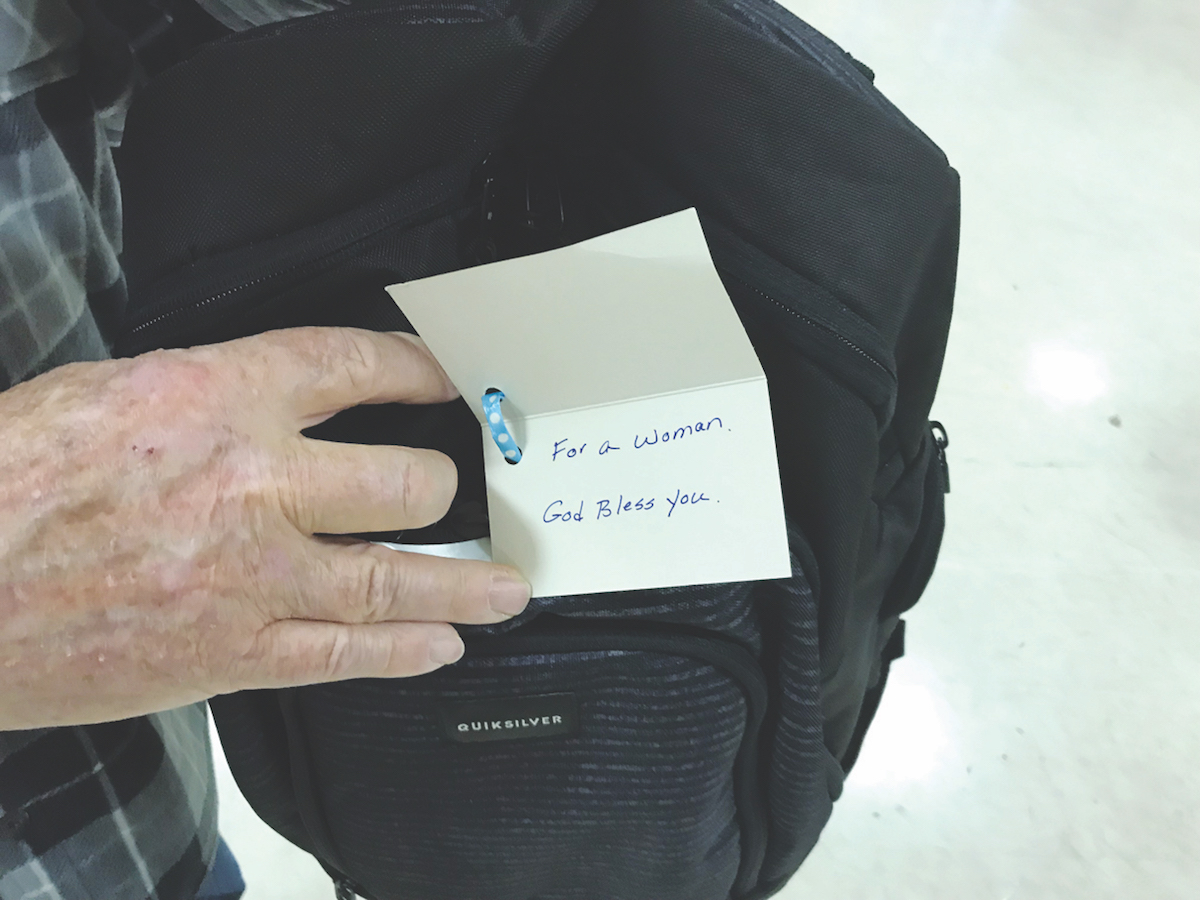 For a Woman.
God Bless you.
QUIKSILVER